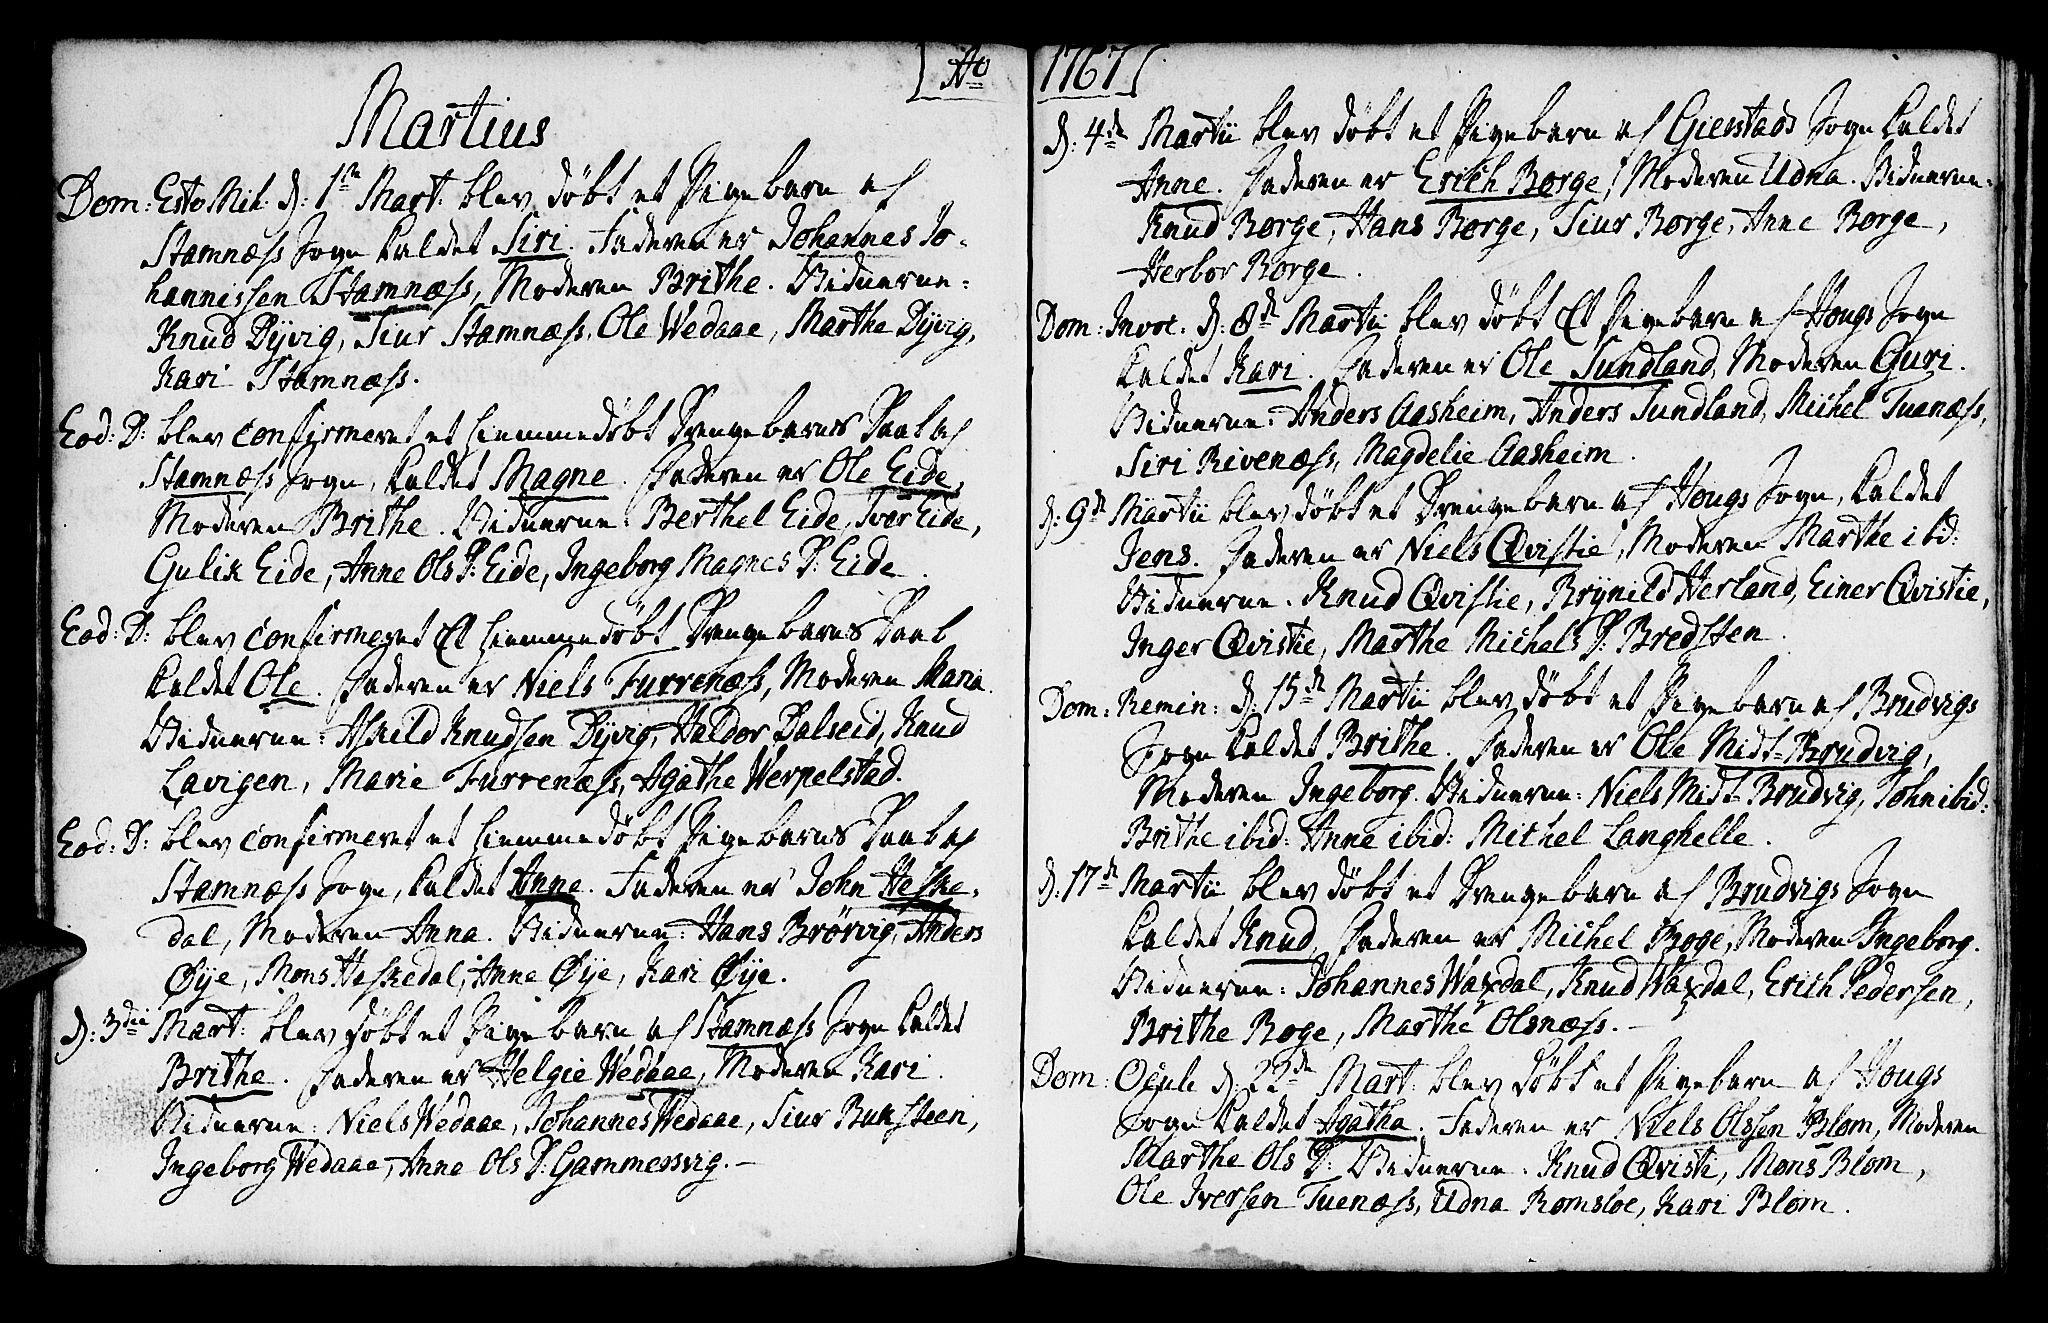 [Ao 1767]
Martius
Dom: Esto Mih. d: 1ste Mart. blev døbt et Pigebarn af
Stamnæss Sogn kaldet Siri. Faderen er Johannes Jo-
hannissen Stamnæss, Moderen Brithe. Vidnerne:
Knud Dyvig, Siur Stamnæss, Ole Wedaae, Marthe Dyvig,
Kari Stamnæss.
Eod: D: blev confirmeret et hiemmedøbt Drengebarns Daab af
Stamnæss Sogn, kaldet Magne. Faderen er Ole Eide,
Moderen Brithe. Vidnerne: Berthel Eide, Iver Eide,
Gulik Eide, Anne Ols D: Eide, Ingeborg Magnes D: Eide.
Eod: D: blev confirmeret Et hiemmedøbt Drengebarns Daab
kaldet Ole. Faderen er Niels Furrenæss, Moderen Maria.
Vidnerne: Askild Knudsen Dyvig, Haldor Dalseid, Knud
Lavigen, Marie Furrenæss, Agathe Werpelstad.
Eod: D: blev confirmeret et hiemmedøbt Pigebarns Daab af
Stamnæss Sogn, kaldet Anne. Faderen er John Heske-
dal, Moderen Anna. Vidnerne: Hans Brørvig, Anders
Øye, Mons Heskedal, Anne Øye, Kari Øye.
d: 3die Mart: blev døbt et Pigebarn af Stamnæss Sogn kaldet
Brithe. Faderen er Helgie Wedaae, Moderen Kari.
Vidnerne: Niels Wedaae, Johannes Wedaae, Siur Buksteen,
Ingeborg Wedaae, Anne Ols D: Gammersvig.-
d: 4de Martii blev døbt et Pigebarn af Gierstads Sogn kaldet
Anne. Faderen er Erich Borge, Moderen Udna. Vidnerne:
Knud Borge, Hans Borge, Siur Borge, Anne Borge,
Herbor Borge.
Dom: Invoc. d: 8de Martii blev døbt Et Pigebarn af Hougs Sogn
kaldet Kari. Faderen er Ole Sundland, Moderen Guri.
Vidnerne: Anders Aasheim, Anders Sundland, Michel Tuanæss,
Siri Rivenæss, Magdelie Aasheim.
d: 9de Martii blev døbt et Drengebarn af Hougs Sogn, kaldet
Jens. Faderen er Niels Qvistie, Moderen Marthe ibid:
Vidnerne. Knud Qvistie, Brynild Herland, Einer Qvistie,
Inger Qvistie, Marthe Michels D: Bredsten.
Dom: Remin: d: 15de Martii blev døbt et Pigebarn af Brudvigs
Sogn kaldet Brithe. Faderen er Ole Midt-Brudvig,
Moderen Ingeborg. Vidnerne: Niels Midt-Brudvig, John ibid:
Brithe ibid: Anne ibid: Michel Langhelle.
d. 17de Martii blev døbt et Drengebarn af Brudvigs Sogn
kaldet Knud, Faderen er Michel Boge, Moderen Ingeborg.
Vidnerne: Johannes Waxdal, Knud Waxdal, Erich Pedersen,
Brithe Boge, Marthe Olsnæss.-
Dom: Oculi d: 22de Mart: blev døbt et Pigebarn af Hougs
Sogn kaldet Agatha. Faderen er Niels Olssen Blom, Moderen
Marthe Ols D: Vidnerne. Knud Qvisti, Mons Blom,
Ole Iversen Tuenæss, Udna Romsloe, Kari Blom.